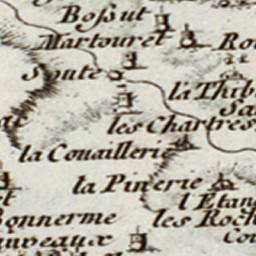 Boſsut
Martouret
Soute
la Thib
les Chartres
la Couaillerie
la Pinerie
l'Etan
Bonnerme
les Roch
auveaux